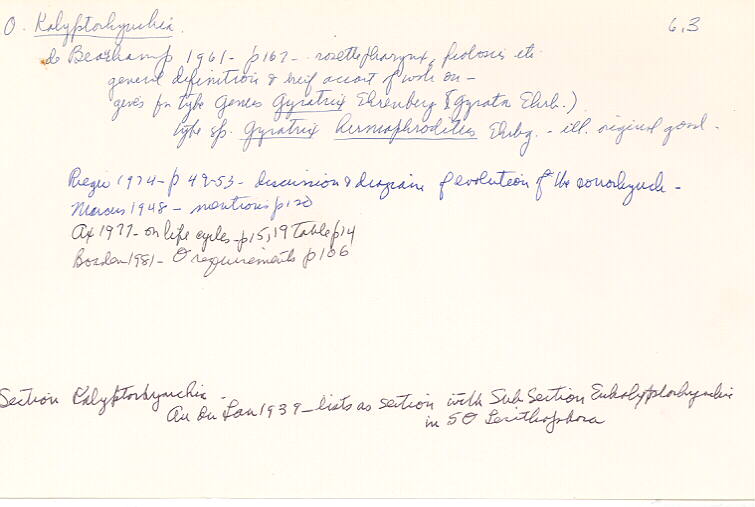 O. Kalyptorhynchia. 6.3
de Beauchamp 1961 - p167 - rosette pharynx, proboscis etc
general definition & brief account of work on -
gives fn type Genus Gyratrix Ehrenberg (Gyrata Ehrb.)
type sp. Gyratrix hermaphroditus Ehrbg. - ill. original good -
1974 - p 49-53 - discussion & diagram of evolution of the conorhynch -
Marcus 1948 - mentions p120
Ax 1977 - on life cycles - p15, 19 Table p14
Boaden 1981 - O requirements p106
Section Kalyptorhynchia -
An der Lan 1939 - lists as section with Sub Section Eukalyptorhynchia
in SO Lecithophora